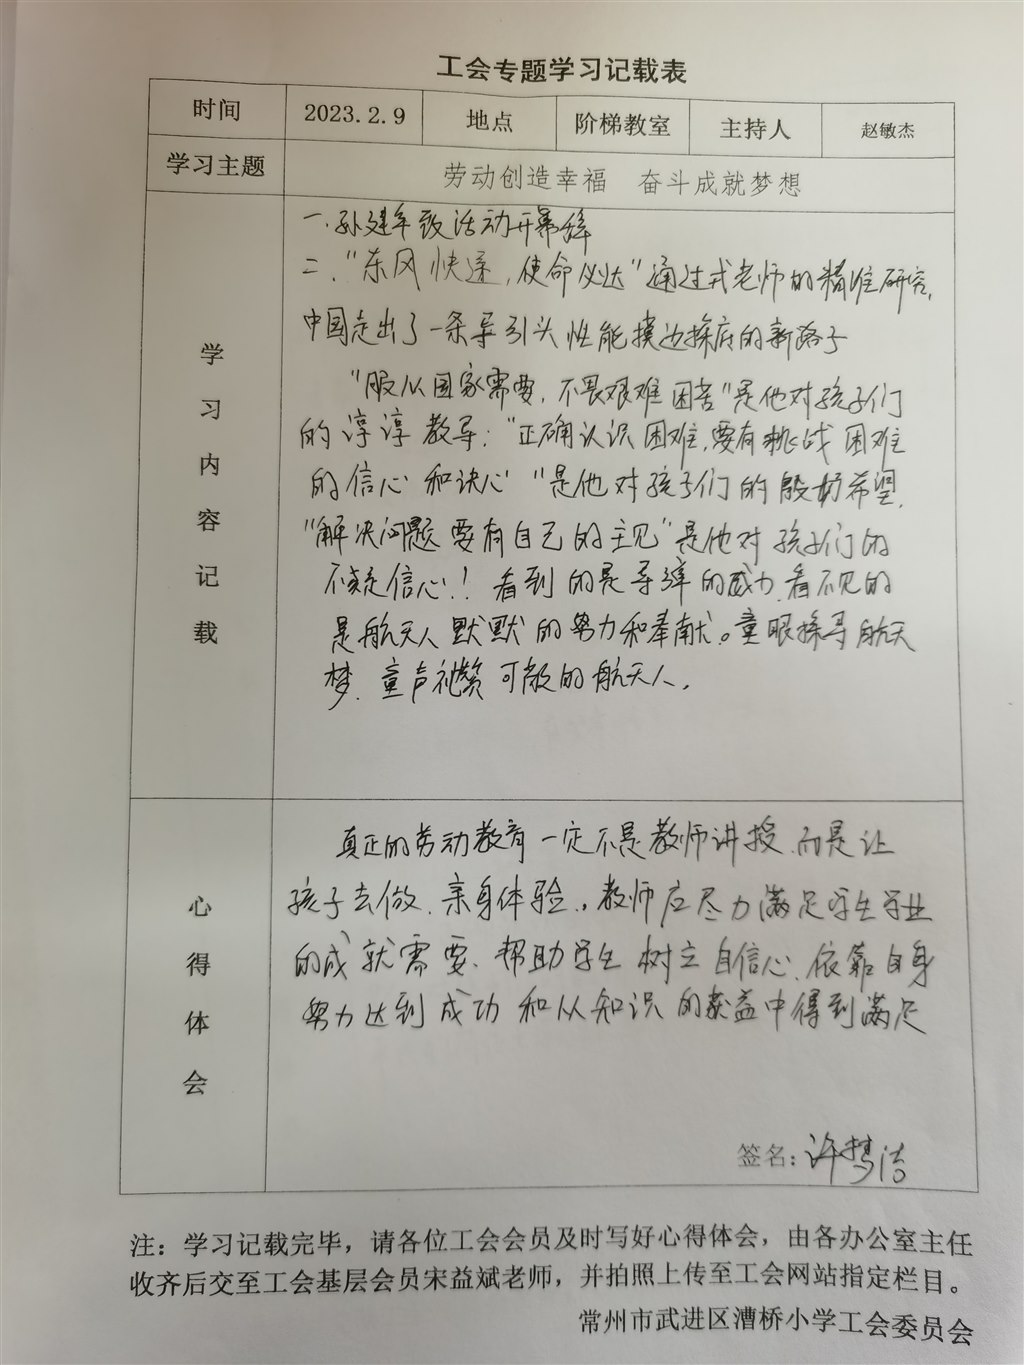 工会专题学习记载表
时间 2023.2.9 地点 阶梯教室 主持人 赵敏杰
学习主题 劳动创造幸福 奋斗成就梦想
学习内容记载
一.孙建军致活动开幕辞
二."东风快递,使命必达"通过式老师的精准研究,
中国走出了一条导引头性能摸边探底的新路子
"服从国家需要,不畏艰难困苦"是他对孩子们
的淳淳教导:"正确认识困难,要有挑战困难
的信心和决心""是他对孩子们的殷切希望,
"解决问题要有自己的主见"是他对孩子们的
不疑信心!看到的是导弹的威力,看不见的
是航天人默默的努力和奉献。童眼探寻航天
梦,童声礼赞可敬的航天人.
心得体会
真正的劳动教育一定不是教师讲授,而是让
孩子去做、亲身体验.,教师应尽力满足学生学业
的成就需要、帮助学生树立自信心、依靠自身
努力达到成功和从知识的获益中得到满足
签名:许梦洁
注:学习记载完毕,请各位工会会员及时写好心得体会,由各办公室主任
收齐后交至工会基层会员宋益斌老师,并拍照上传至工会网站指定栏目。
常州市武进区漕桥小学工会委员会